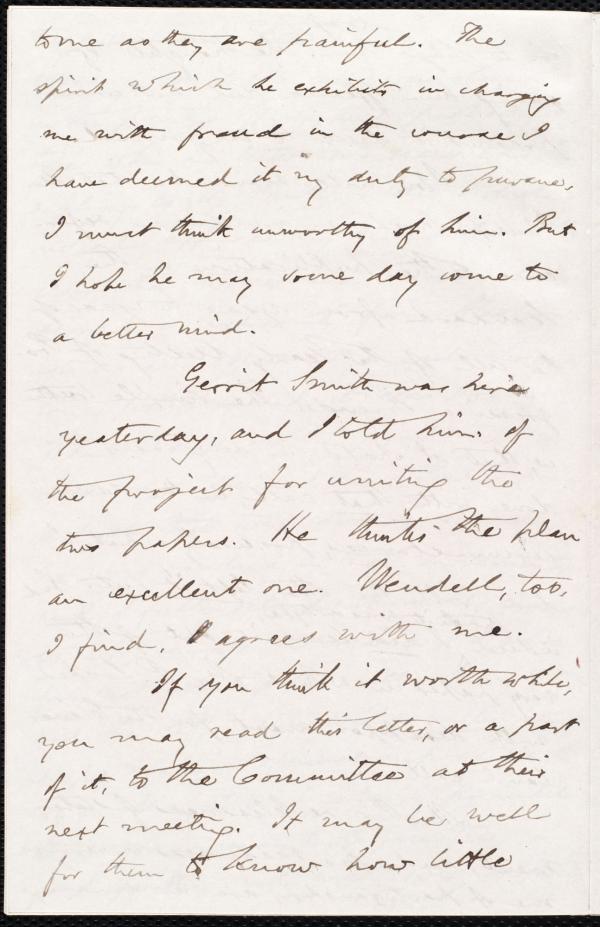 to me as they are painful. The
spirit which he exhibits in charging
me with fraud in the course I
have deemed it my duty to pursue,
I must think unworthy of him. But
I hope he may some day come to
a better mind.
Gerrit Smith was here
yesterday, and I told him of
the project for uniting the
two papers. He thinks the plan
an excellent one. Wendell, too,
I find, agrees with me.
If you think it worth while,
you may read this letter, or a part
of it, to the Committee at their
next meeting. It may be well
for them to know how little